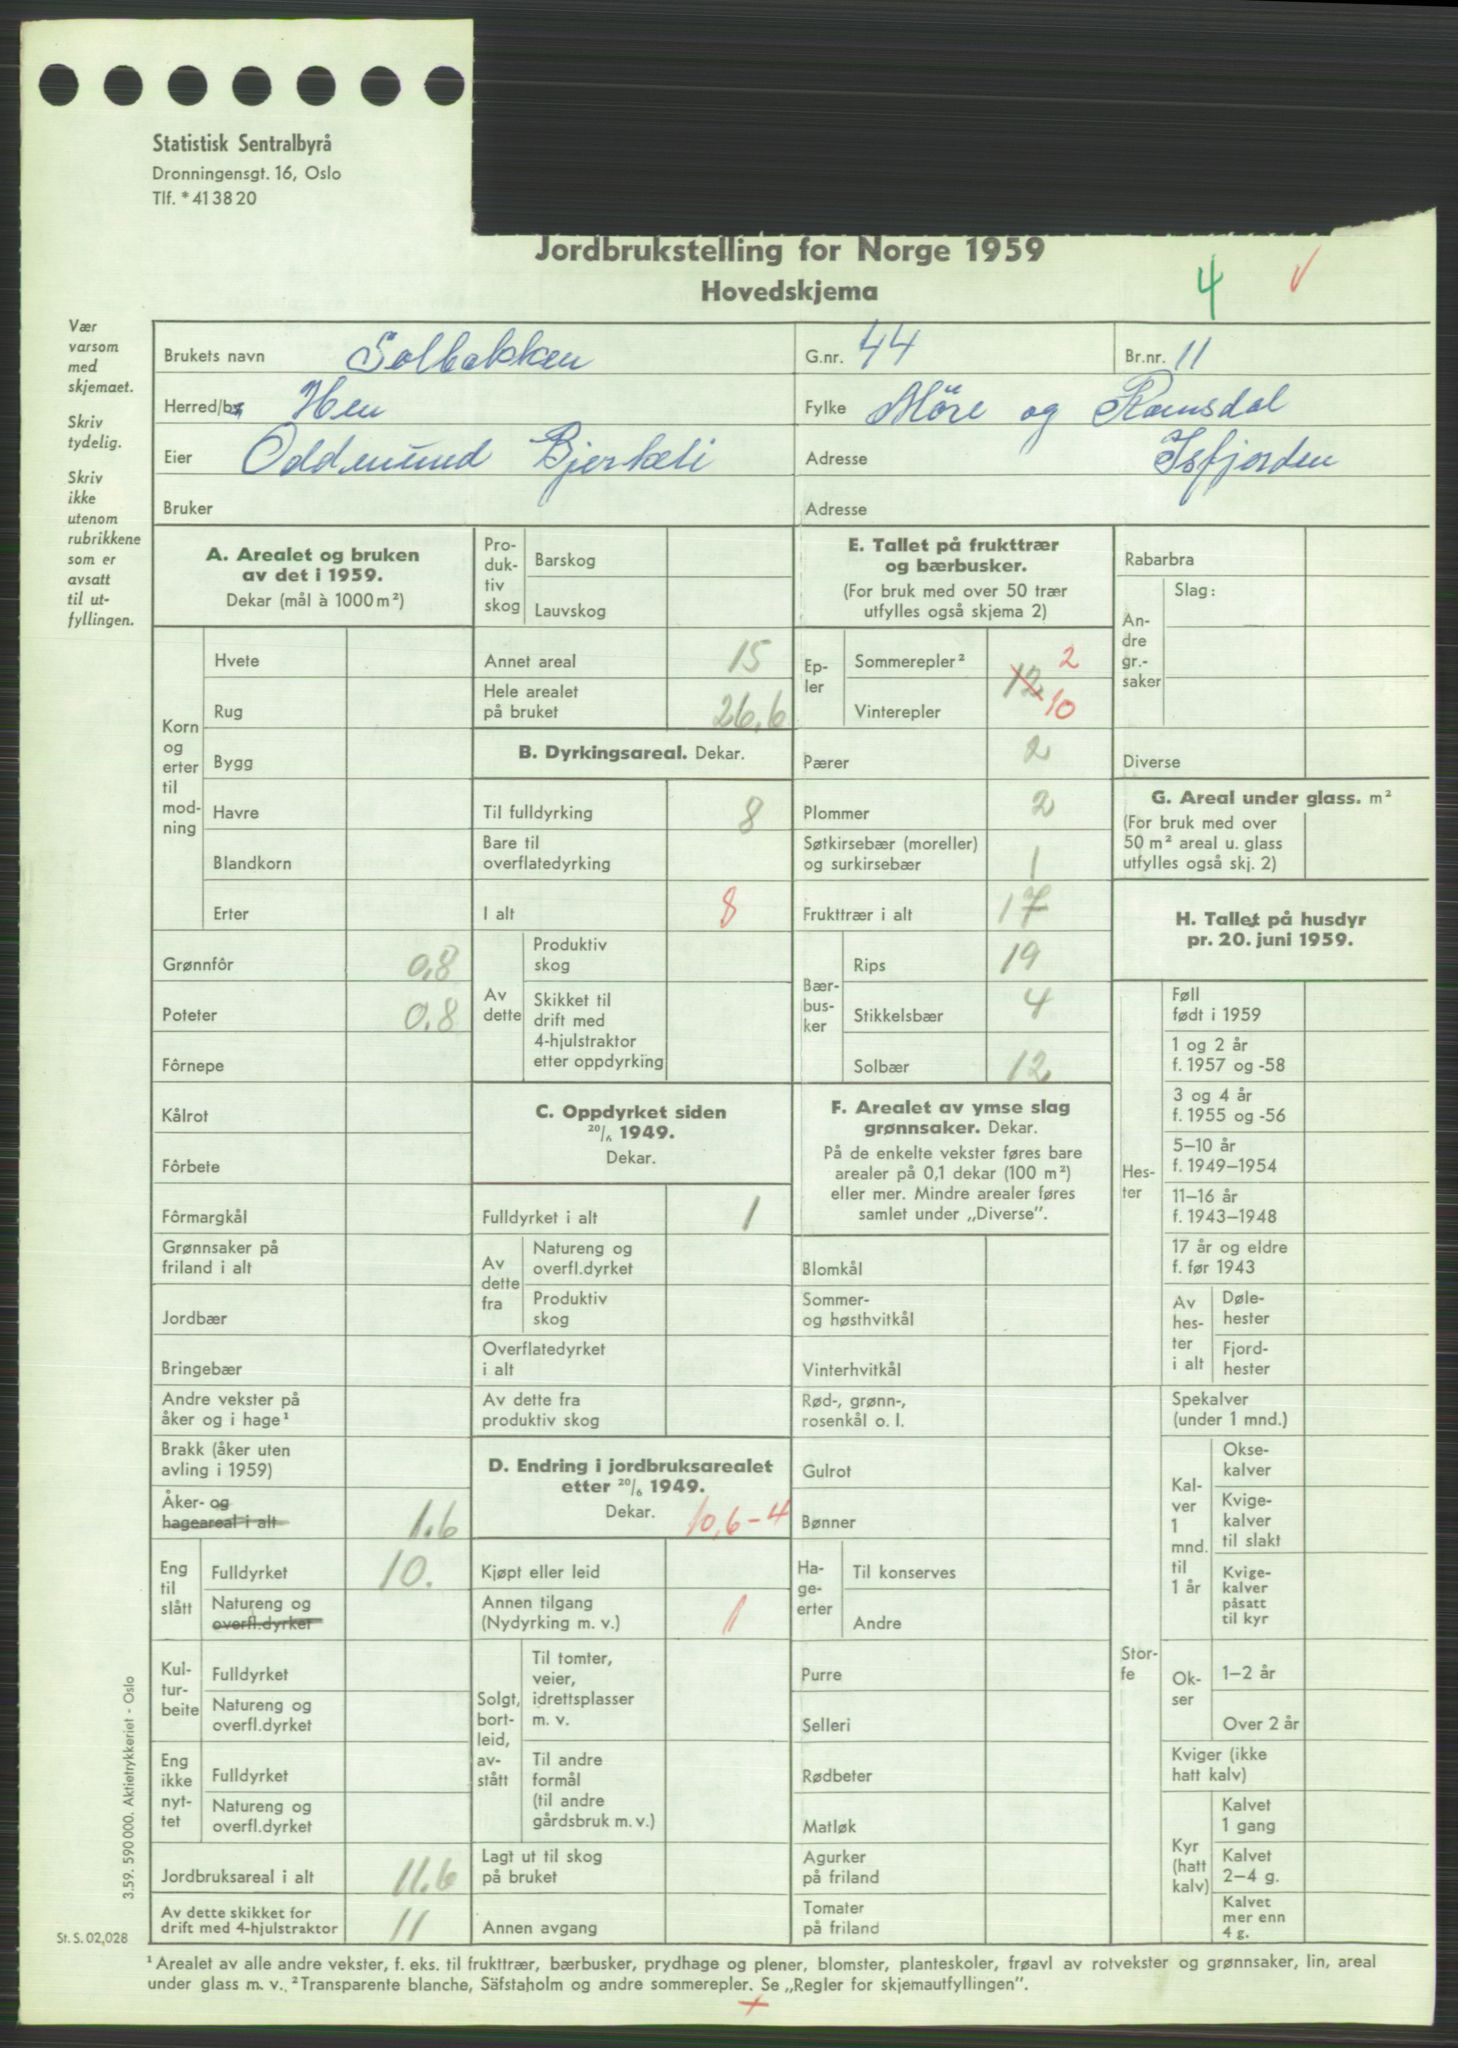 Statistisk Sentralbyrå
Dronningensgt. 16, Oslo
Tlf. * 41 38 20
Jordbrukstelling for Norge 1959
Hovedskjema
4 √
Vær
varsom
med
skjemaet.
Skriv
tydelig.
Skriv
ikke
utenom
rubrikkene
som er
avsatt
til ut-
fyllingen.
Brukets navn Solbakken G.nr. 44 Br.nr. 11
Herred/by Hen Fylke Möre og Romsdal
Eier Oddmund Bjerkeli Adresse Isfjorden
Bruker Adresse
A. Arealet og bruken
av det i 1959.
Dekar (mål à 1000 m²)
Korn
og
erter
til
mod-
ning
Hvete
Rug
Bygg
Havre
Blandkorn
Erter
Grønnfôr 0,8
Poteter 0,8
Fôrnepe
Kålrot
Fôrbete
Fôrmargkål
Grønnsaker på
friland i alt
Jordbær
Bringebær
Andre vekster på
åker og i hage¹
Brakk (åker uten
avling i 1959)
Åker- og
hageareal i alt 1.6
Eng
til
slått
Fulldyrket 10.
Natureng og
overfl.dyrket
Kul-
tur-
beite
Fulldyrket
Natureng og
overfl.dyrket
Eng
ikke
nyt-
tet
Fulldyrket
Natureng og
overfl.dyrket
Jordbruksareal i alt 11.6
Av dette skikket for
drift med 4-hjulstraktor 11
Pro-
duk-
tiv
skog
Barskog
Lauvskog
Annet areal 15
Hele arealet
på bruket 26,6
B. Dyrkingsareal. Dekar.
Til fulldyrking 8
Bare til
overflatedyrking
I alt 8
Av
dette
Produktiv
skog
Skikket til
drift med
4-hjulstraktor
etter oppdyrking
C. Oppdyrket siden
20/6 1949.
Dekar.
Fulldyrket i alt 1
Av
dette
fra
Natureng og
overfl.dyrket
Produktiv
skog
Overflatedyrket
i alt
Av dette fra
produktiv skog
D. Endring i jordbruksarealet
etter 20/6 1949.
Dekar. 10,6-4
Kjøpt eller leid
Annen tilgang
(Nydyrking m. v.) 1
Solgt,
bort-
leid,
av-
stått
Til tomter,
veier,
idrettsplasser
m. v.
Til andre
formål
(til andre
gårdsbruk m. v.)
Lagt ut til skog
på bruket
Annen avgang
E. Tallet på frukttrær
og bærbusker.
(For bruk med over 50 trær
utfylles også skjema 2)
Ep-
ler
Sommerepler² 2
12
Vinterepler 10
Pærer 2
Plommer 2
Søtkirsebær (moreller)
og surkirsebær 1
Frukttrær i alt 17
Bær-
bus-
ker
Rips 19
Stikkelsbær 4
Solbær 12
F. Arealet av ymse slag
grønnsaker. Dekar.
På de enkelte vekster føres bare
arealer på 0,1 dekar (100 m²)
eller mer. Mindre arealer føres
samlet under „Diverse”.
Blomkål
Sommer-
og høsthvitkål
Vinterhvitkål
Rød-, grønn-,
rosenkål o. l.
Gulrot
Bønner
Ha-
ge-
erter
Til konserves
Andre
Purre
Selleri
Rødbeter
Matløk
Agurker
på friland
Tomater
på friland
Rabarbra
An-
dre
gr.-
saker
Slag:
Diverse
G. Areal under glass. m²
(For bruk med over
50 m² areal u. glass
utfylles også skj. 2)
H. Tallet på husdyr
pr. 20. juni 1959.
Hes-
ter
Føll
født i 1959
1 og 2 år
f. 1957 og -58
3 og 4 år
f. 1955 og -56
5–10 år
f. 1949–1954
11–16 år
f. 1943–1948
17 år og eldre
f. før 1943
Av
hes-
ter
i alt
Døle-
hester
Fjord-
hester
Stor-
fe
Spekalver
(under 1 mnd.)
Kal-
ver
1
mnd.
til
1 år
Okse-
kalver
Kvige-
kalver
til slakt
Kvige-
kalver
påsatt
til kyr
Ok-
ser
1–2 år
Over 2 år
Kviger (ikke
hatt kalv)
Kyr
(hatt
kalv)
Kalvet
1 gang
Kalvet
2–4 g.
Kalvet
mer enn
4 g.
3.59. 590 000. Aktietrykkeriet - Oslo
St. S. 02,028
¹ Arealet av alle andre vekster, f. eks. til frukttrær, bærbusker, prydhage og plener, blomster, planteskoler, frøavl av rotvekster og grønnsaker, lin, areal
under glass m. v. ² Transparente blanche, Säfstaholm og andre sommerepler. Se „Regler for skjemautfyllingen”.
+